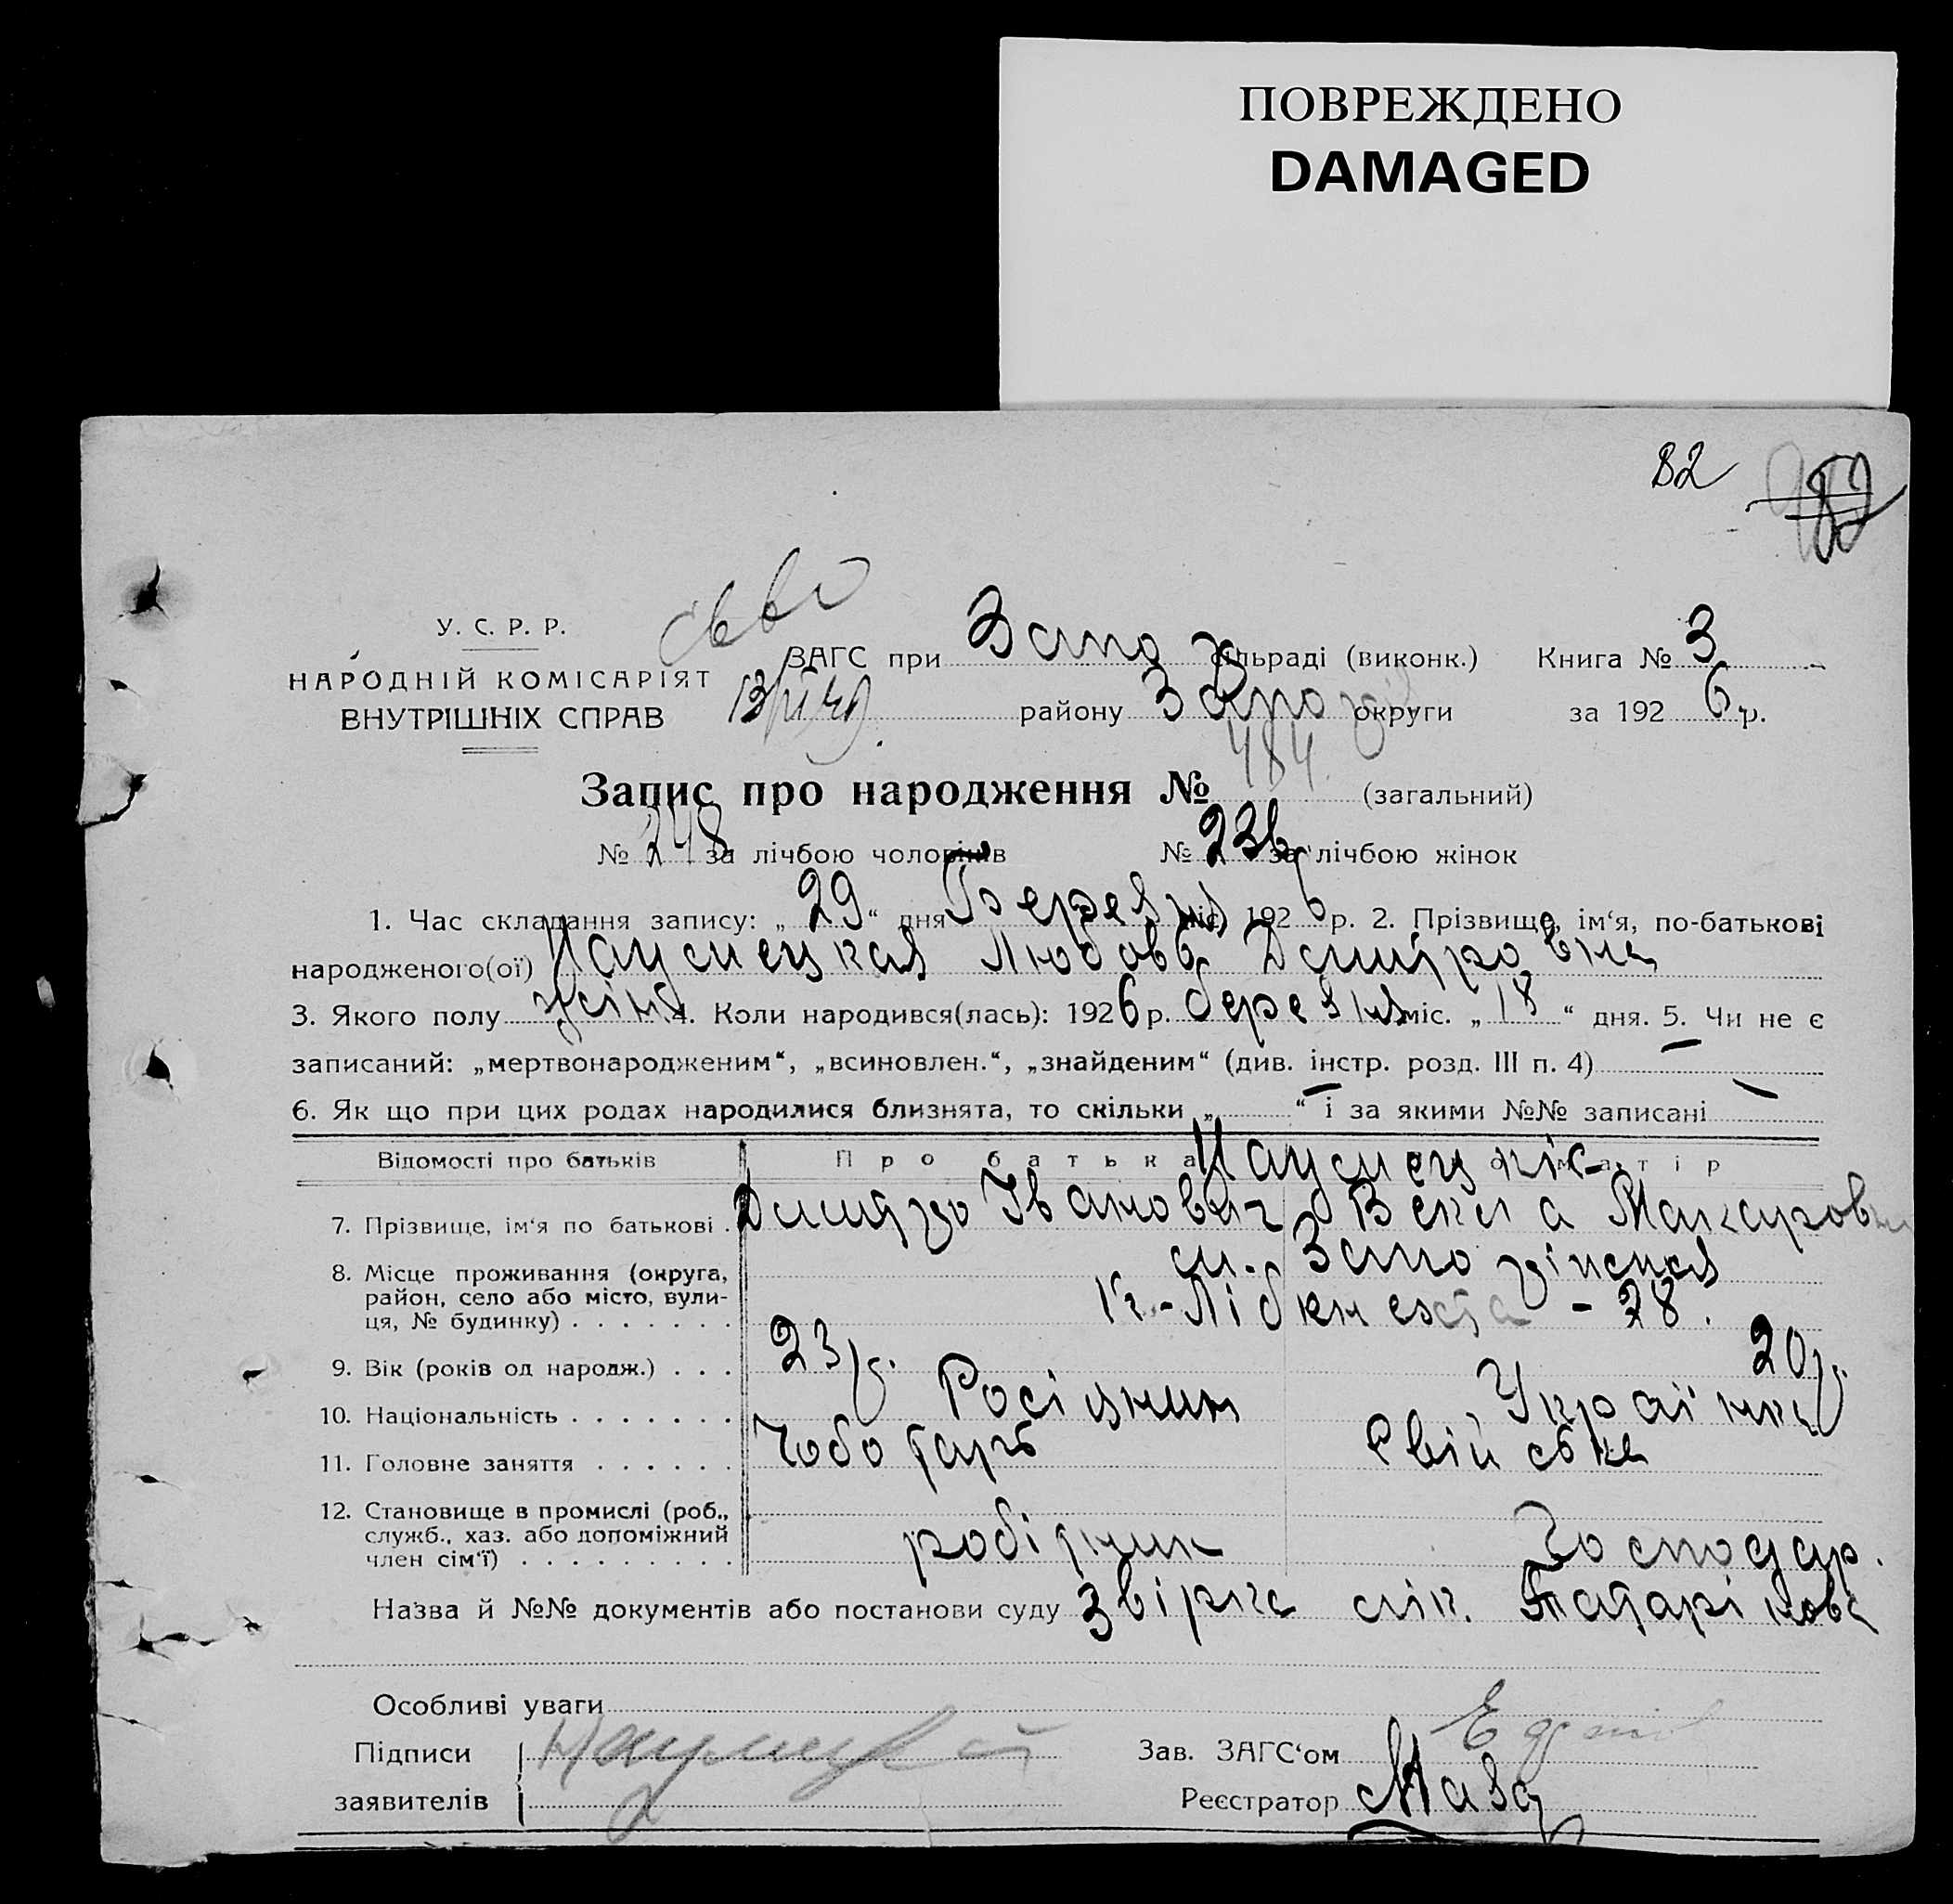 ПОВРЕЖДЕНО
DAMAGED
82
У. С. Р. Р.
НАРОДНІЙ КОМІСАРІЯТ
ВНУТРІШНІХ СПРАВ
ЗАГС при Запо сільраді (виконк.) Книга № 3
району Запо округи за 1926 р.
Запис про народження № 484 (загальний)
№ 248 за лічбою чоловіків № 236 за лічбою жінок
1. Час складання запису: „29“ дня Березня міс. 1926 р. 2. Прізвище, ім‘я, по-батькові
народженого(ої) Любовь Дмитровна
3. Якого полу жіно 4. Коли народився(лась): 1926 р. березня міс. „18“ дня. 5. Чи не є
записаний: „мертвонародженим“, „всиновлен.“, „знайденим“ (див. інстр. розд. III п. 4) —
6. Як що при цих родах народилися близнята, то скільки „—“ і за якими №№ записані —
Відомості про батьків Про батька матір
7. Прізвище, ім‘я по батькові . Дмитро Іванович Векла Макаровна
8. Місце проживання (округа, район, село або місто, вулиця, № будинку) . . . . . . . м. Запоріжжя
К.-Лібкнехта - 28.
9. Вік (років од народж.) . . . 23 р. 20 р.
10. Національність . . . . . . . Росіянин Українка
11. Головне заняття . . . . . . Чоботарь Свійська
12. Становище в промислі (роб., служб., хаз. або допоміжний член сім‘ї) . . . . . . . . . робітник Господар.
Назва й №№ документів або постанови суду Звірка лік. Татарінова
Особливі уваги
Підписи
заявителів
Зав. ЗАГС‘ом
Реєстратор